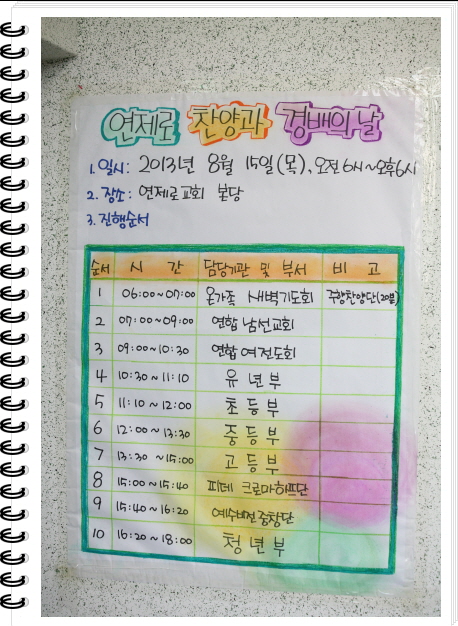 연제로 찬양과 경배의 날
1. 일시: 2013년 8월 15일(목), 오전 6시~오후 6시
2. 장소: 연제로교회 본당
3. 진행순서
순서 시 간 담당기관 및 부서 비 고
1 06:00~07:00 온가족 새벽기도회 주향찬양단(20분)
2 07:00~09:00 연합 남선교회
3 09:00~10:30 연합 여전도회
4 10:30~11:10 유년부
5 11:10~12:00 초등부
6 12:00~13:30 중등부
7 13:30~15:00 고등부
8 15:00~15:40 피데 크로마하프단
9 15:40~16:20 예수비전중창단
10 16:20~18:00 청년부